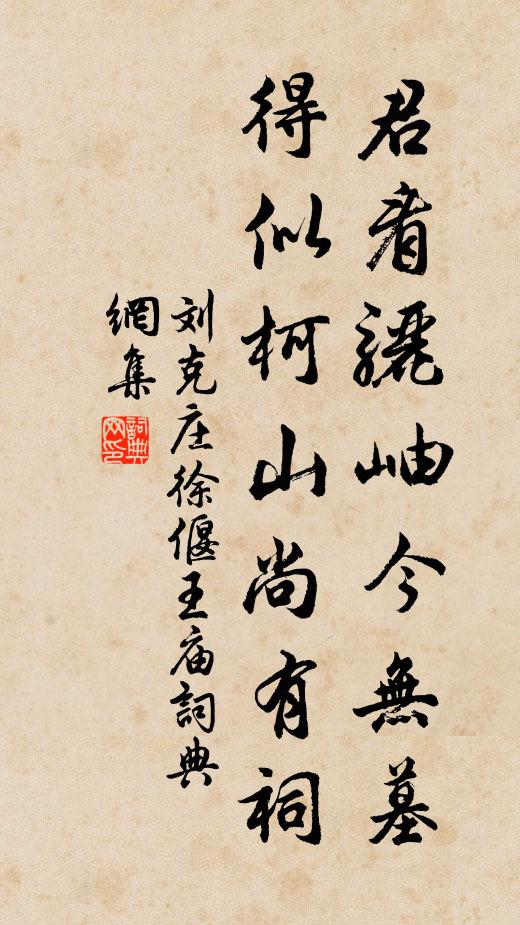 君看驪岫今無墓
得似柯山尚有祠
刘克庄徐偃王庙詞典
網集
詞典
网印